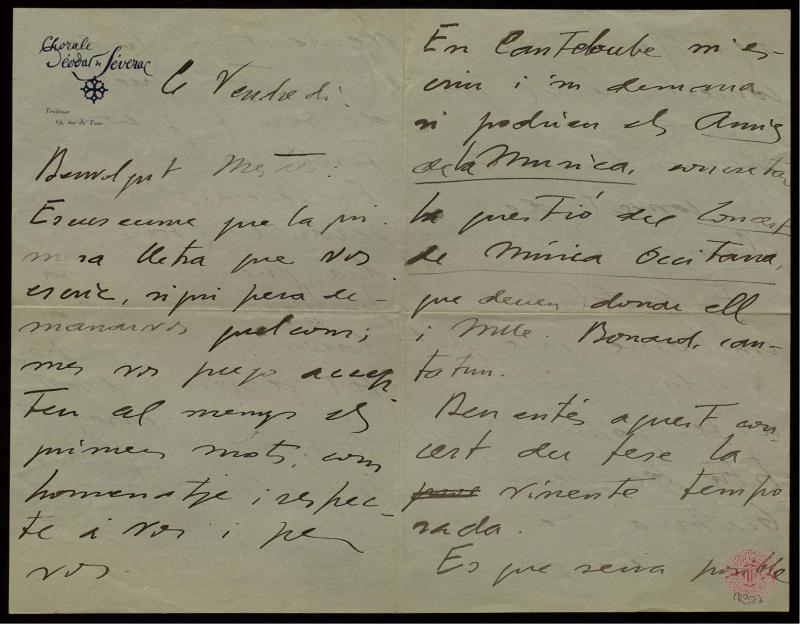 Chorale
Déodat de Séverac
Toulouse
rue du Taur
Le Vendredi.
Benvolgut Mestre:
Excuseume que la pri-
mera lletra que vos
escric, sigui pera de-
manarvos quelcom;
mes vos prego accep-
teu al menys els
primers mots, com
homenatje i respec-
te á vos i per
vos.
En Canteloube m'es-
criu i 'm demana
si podrien els Amics
de la Musica, concretar
la questió del Concert
de Música Occitana,
que deuen donar ell
i Mlle. Bonard, can-
tatriu.
Ben entés aquest con-
cert deu ferse la
vinente tempo
rada.
Es que seria posible